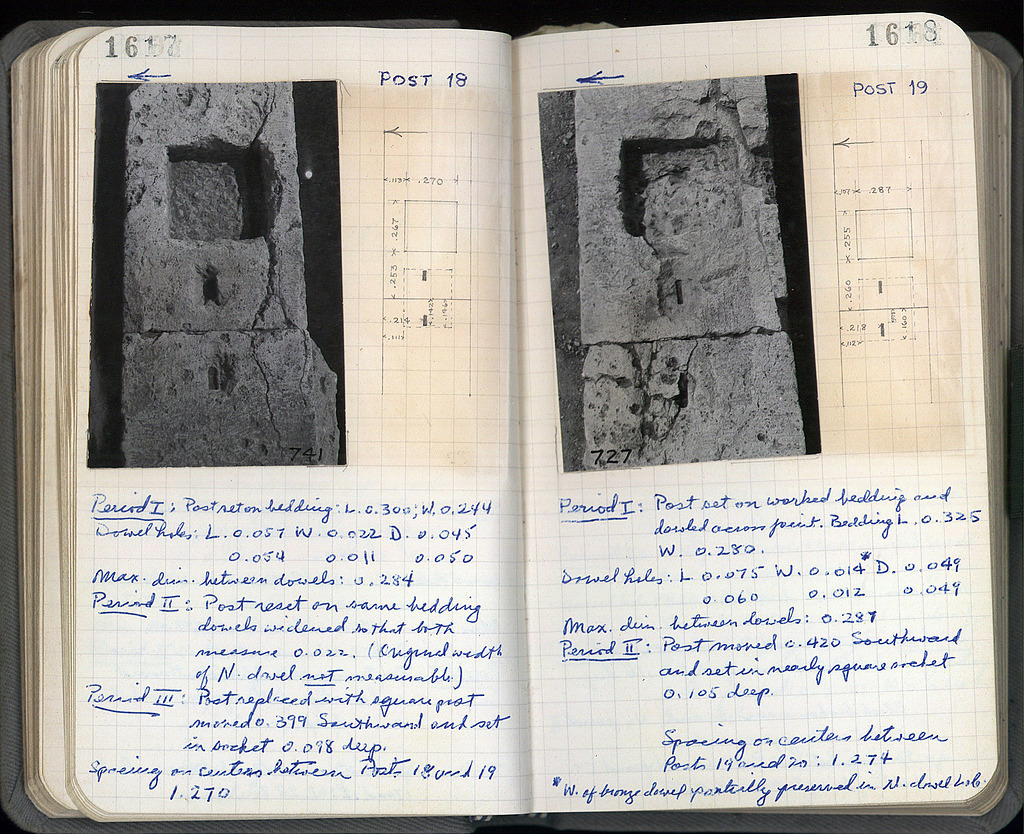 1617
POST 18
.113
.270
.267
.253
.214
.111
741
Period I: Post set on bedding: L. 0.300; W. 0.244
Dowel holes: L. 0.057 W. 0.022 D. 0.045
0.054 0.011 0.050
Max. dim. between dowels: 0.284
Period II: Post reset on same bedding
dowels widened so that both
measure 0.022. (Original width
of N. dowel not measurable.)
Period III: Post replaced with square post
moved 0.399 Southward and set
in socket 0.098 deep.
Spacing on centers between Posts 18 and 19
1.270
1618
POST 19
.107
.287
.255
.260
.218
.160
.112
727
Period I: Post set on worked bedding and
doweled across joint. Bedding L. 0.325
W. 0.280.
Dowel holes: L 0.075 W. 0.014* D. 0.049
0.060 0.012 0.049
Max. dim. between dowels: 0.287
Period II: Post moved 0.420 Southward
and set in nearly square socket
0.105 deep.
Spacing on centers between
Posts 19 and 20: 1.274
*W. of bronze dowel partially preserved in N. dowel hole.